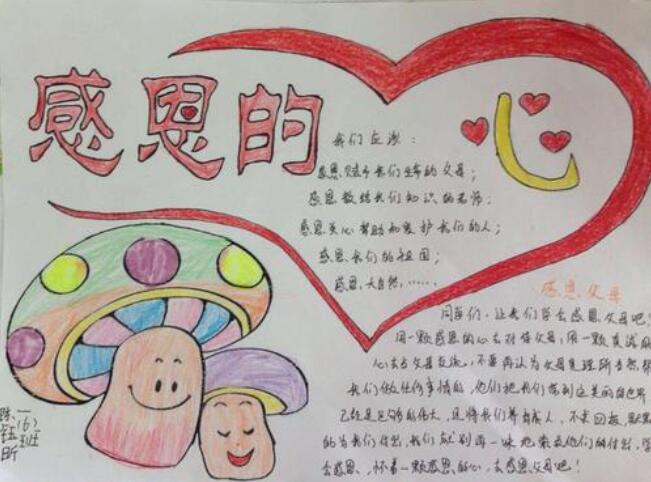 感恩的心
我们应该：
感恩赋予我们生命的父母；
感恩教给我们知识的老师；
感恩关心帮助和爱护我们的人；
感恩我们的祖国；
感恩大自然，……
感恩父母
同学们，让我们学会感恩父母吧！
用一颗感恩的心去对待父母，用一颗真诚的
心去与父母交流，不要再认为父母是理所当然帮
我们做任何事情的，他们把我们带到这美的世界
已经是足够的伟大，且将我们养育成人，不求回报，默默
的为我们付出，我们就别再一味地索取他们的付出，学
会感恩，怀着一颗感恩的心，去感恩父母吧！
一(6)班
陈钰昕